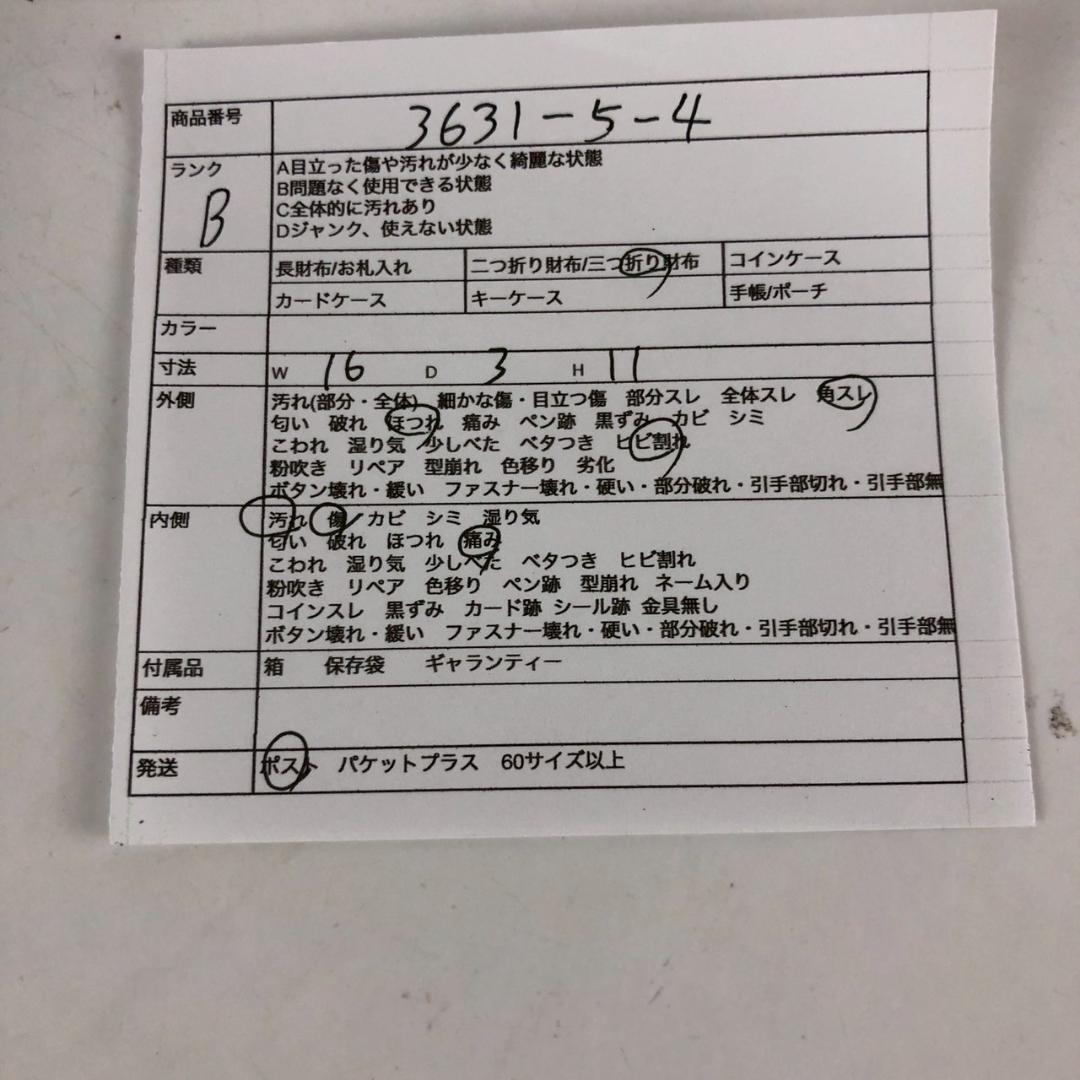 商品番号 3631-5-4
ランク B
A目立った傷や汚れが少なく綺麗な状態
B問題なく使用できる状態
C全体的に汚れあり
Dジャンク、使えない状態
種類 長財布/お札入れ 二つ折り財布/三つ折り財布 コインケース
カードケース キーケース 手帳/ポーチ
カラー
寸法 W 16 D 3 H 11
外側 汚れ(部分・全体) 細かな傷・目立つ傷 部分スレ 全体スレ 角スレ
匂い 破れ ほつれ 痛み ペン跡 黒ずみ カビ シミ
こわれ 湿り気 少しべた ベタつき ヒビ割れ
粉吹き リペア 型崩れ 色移り 劣化
ボタン壊れ・緩い ファスナー壊れ・硬い・部分破れ・引手部切れ・引手部無
内側 汚れ 傷 カビ シミ 湿り気
匂い 破れ ほつれ 痛み
こわれ 湿り気 少しべた ベタつき ヒビ割れ
粉吹き リペア 色移り ペン跡 型崩れ ネーム入り
コインスレ 黒ずみ カード跡 シール跡 金具無し
ボタン壊れ・緩い ファスナー壊れ・硬い・部分破れ・引手部切れ・引手部無
付属品 箱 保存袋 ギャランティー
備考
発送 ポスト パケットプラス 60サイズ以上